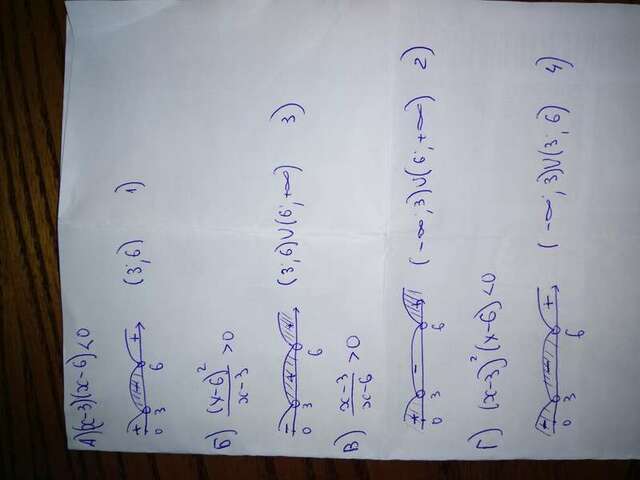 А) (x-3)(x-6)<0
+ - +
0 3 6
(3; 6) 1)
Б) (x-6)² / x-3 >0
- + +
0 3 6
(3; 6)∪(6; +∞) 3)
В) x-3 / x-6 >0
+ - +
0 3 6
(-∞; 3)∪(6; +∞) 2)
Г) (x-3)²(x-6)<0
- - +
0 3 6
(-∞; 3)∪(3; 6) 4)